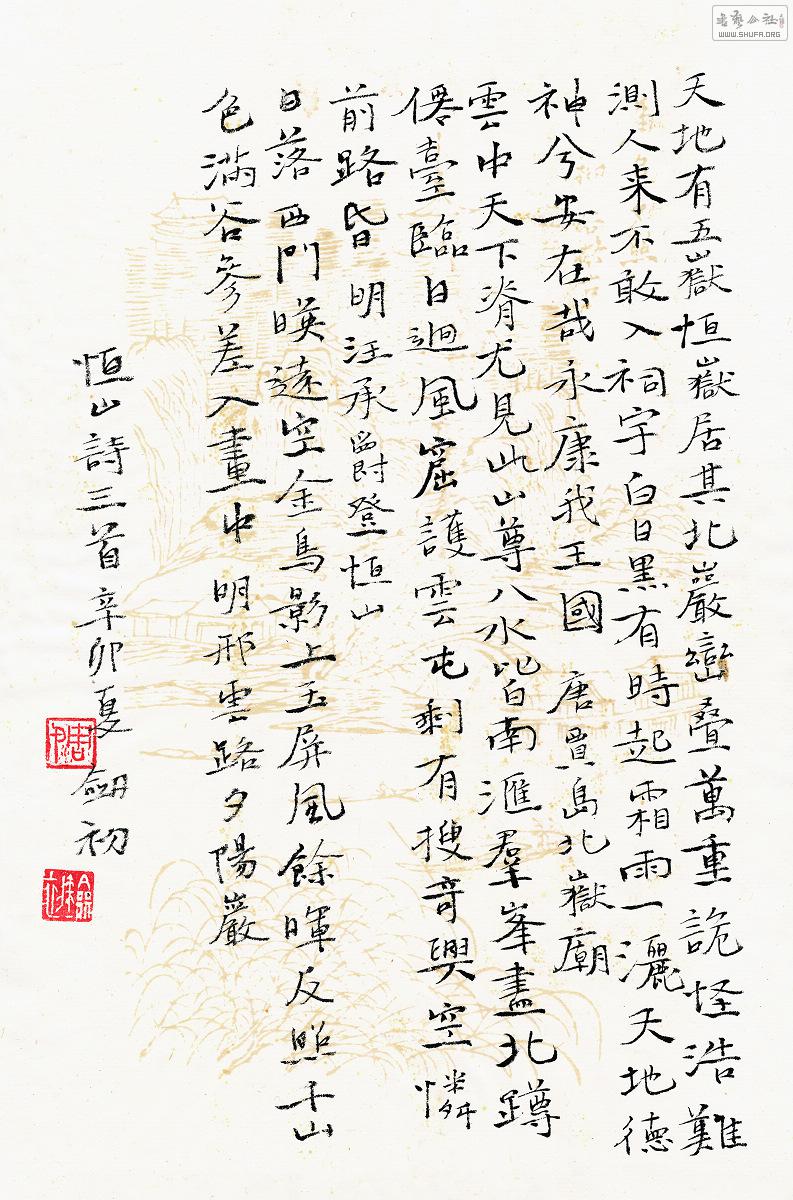 天地有五嶽恒嶽居其北巖巒叠萬重詭怪浩難
測人来不敢入祠宇白日黑有時起霜雨一灑天地德
神兮安在哉永康我王國 唐賈島北嶽廟
雲中天下脊尤見此山尊八水皆南滙羣峯盡北蹲
僊臺臨日迥風窟護雲屯剩有搜奇興空憐
前路昏 明汪承爵登恒山
日落西門暎遠空金烏影上玉屏風餘暉反照千山
色滿谷參差入畫中 明邢雲路夕陽巖
恒山詩三首辛卯夏 劒初
WWW.SHUFA.ORG